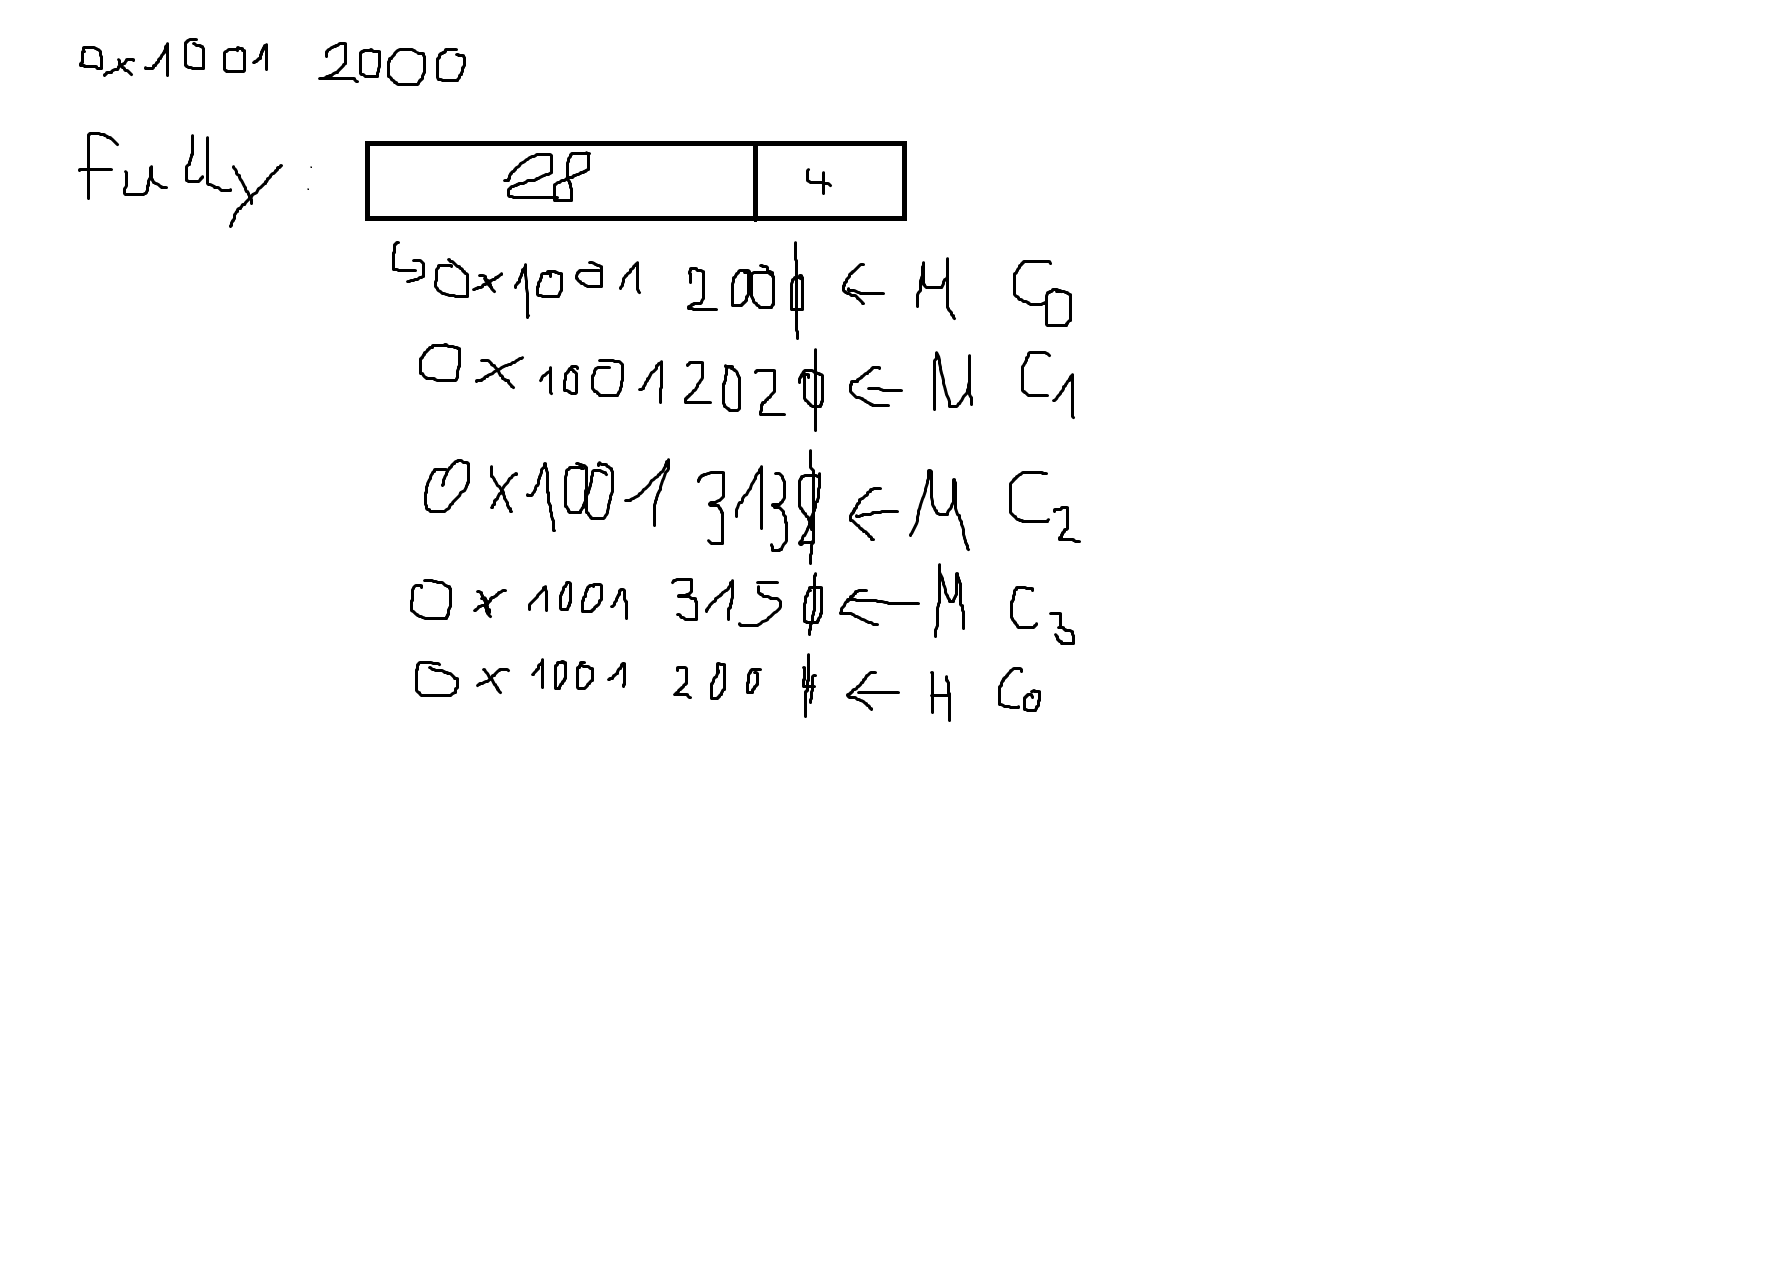 0x1001 2000
Fully:
28 4
↳0x1001 2000 ← M C0
0x10012020 ← M C1
0x1001 3130 ← M C2
0x1001 3150 ← M C3
0x1001 2004 ← H C0